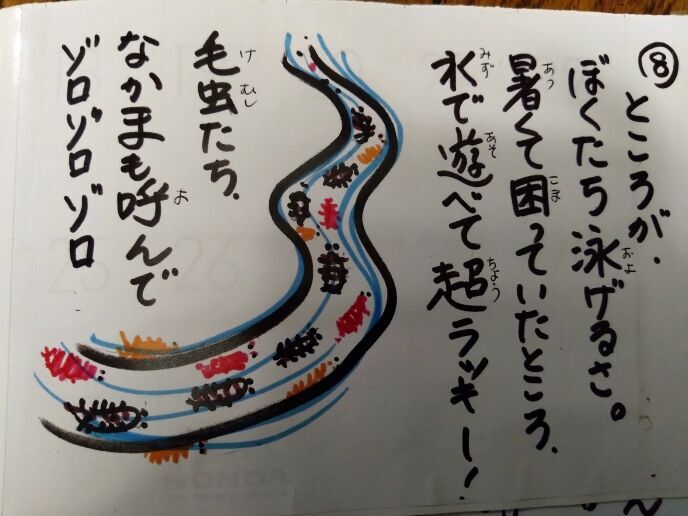 ⑧
ところが、
ぼくたち泳げるさ。
暑くて困っていたところ、
水で遊べて超ラッキー!
毛虫たち、
なかまも呼んで
ゾロゾロゾロ